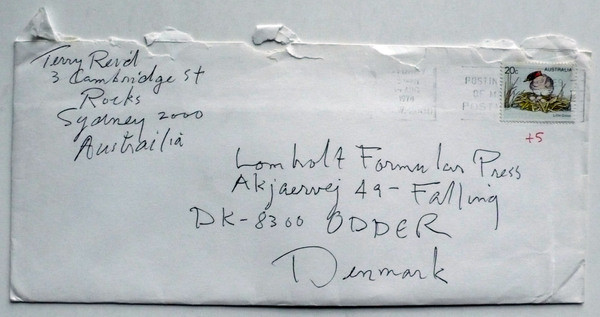 Terry Reid
3 Cambridge St
Rocks
Sydney 2000
Austrailia
20c AUSTRALIA
POSTIN
OF M
POST
+5
Lomholt Formular Press
Akjaervej 49 - Falling
DK-8300 ODDER
Denmark